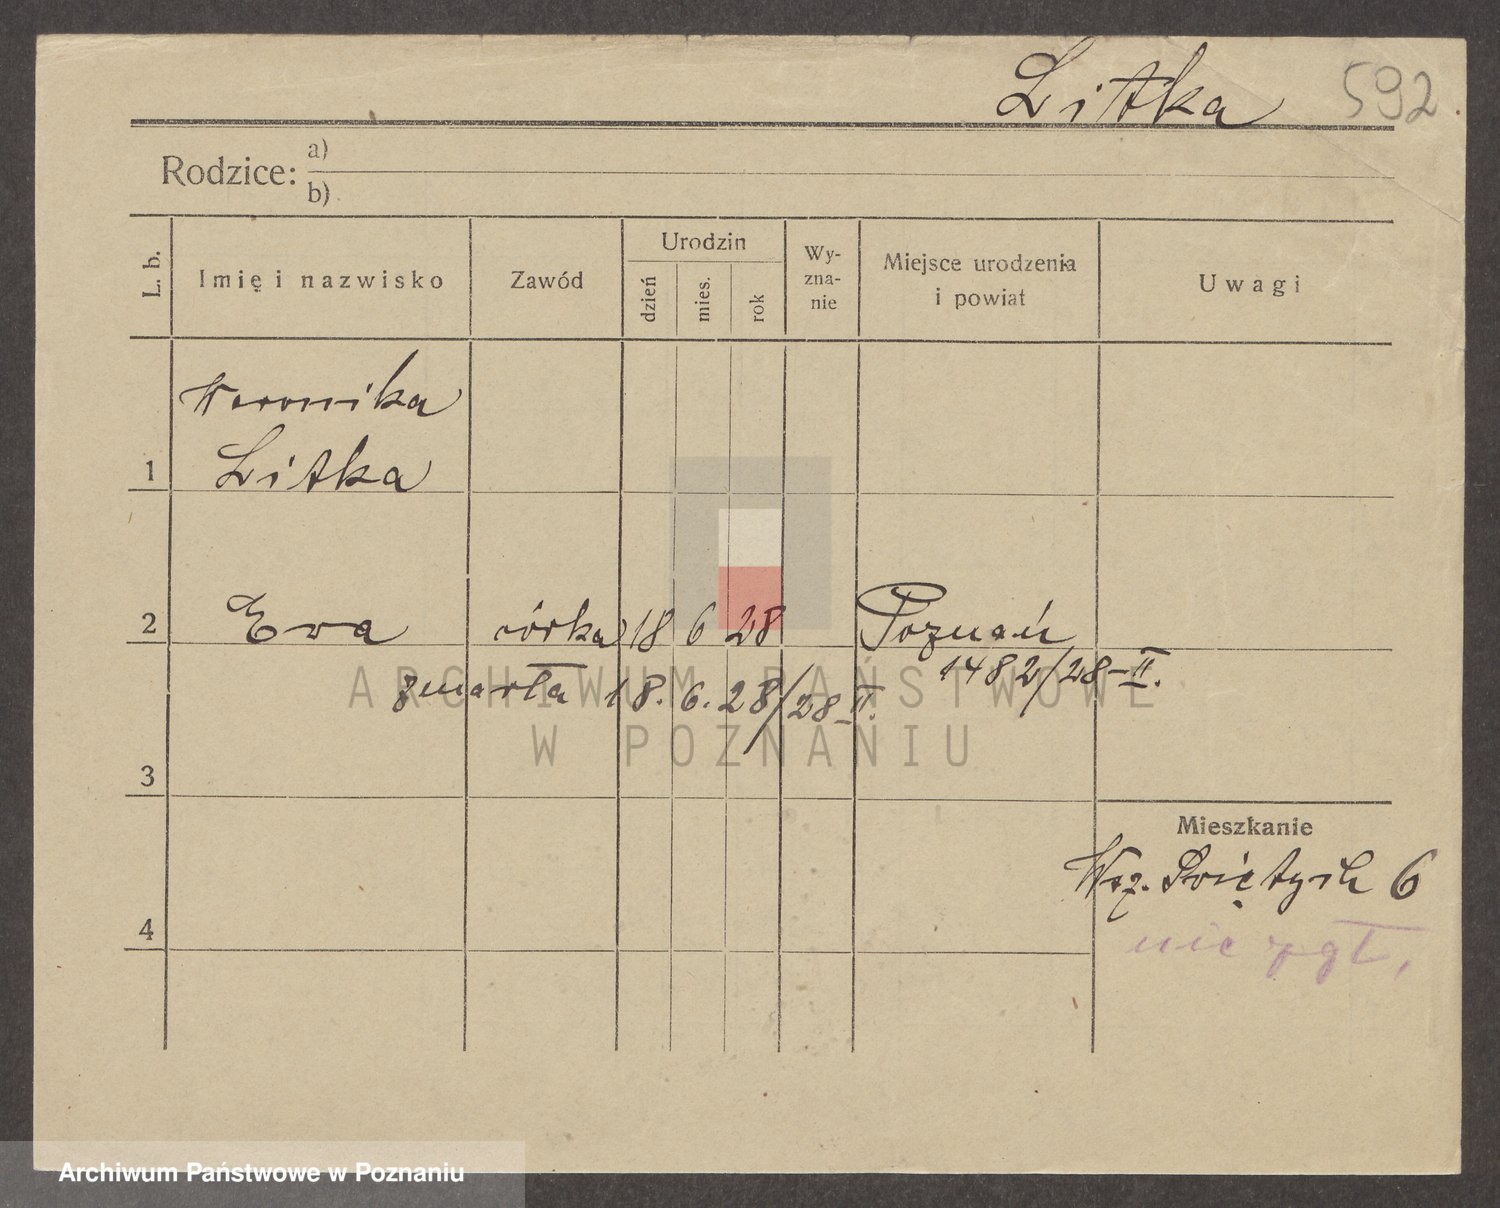 Litka 592.
Rodzice: a)
b)
L. b.
Imię i nazwisko
Zawód
Urodzin
dzień
mies.
rok
Wy-
zna-
nie
Miejsce urodzenia
i powiat
Uwagi
Weronika
1 Litka
2 Ewa córka 18 6 28 Poznań
1482/28-II.
zmarła 18.6.28/28-II.
3
Mieszkanie
Wsz. Świętych 6
4
nie zgł.
ARCHIWUM PAŃSTWOWE
W POZNANIU
Archiwum Państwowe w Poznaniu